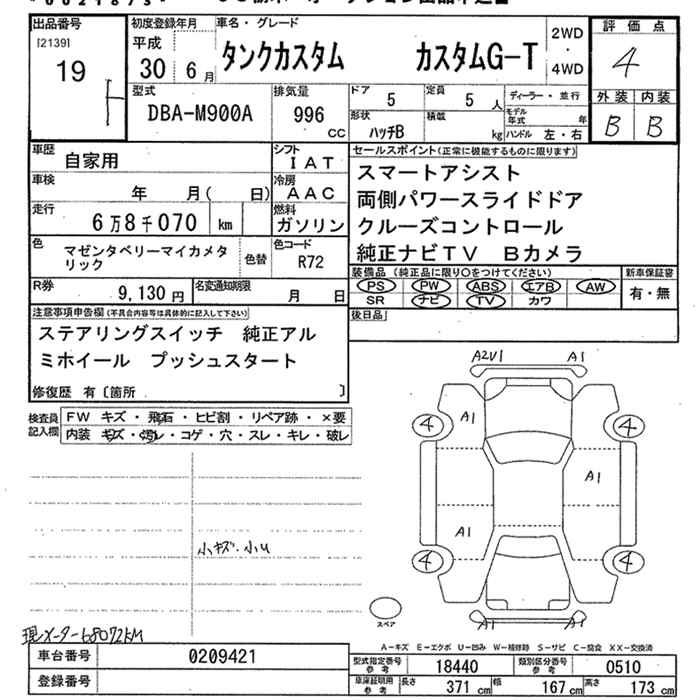 出品番号
[2139]
19
初度登録年月
平成
30 6月
車名・グレード
タンクカスタム カスタムG-T
2WD
・
4WD
評価点
4
外装 内装
B B
型式
DBA-M900A
排気量
996
cc
ドア
5
定員
5 人
ディーラー・並行
形状
ハッチB
積載
kg
モデル年式 年
ハンドル 左・右
車歴
自家用
シフト
IAT
車検
年 月( 日)
冷房
AAC
走行
6万8千070 km
燃料
ガソリン
色
マゼンタベリーマイカメタ
リック
色替
色コード
R72
R券
9,130円
名変通知期限
月 日
セールスポイント(正常に機能するものに限ります)
スマートアシスト
両側パワースライドドア
クルーズコントロール
純正ナビTV Bカメラ
装備品(純正品に限り○をつけてください)
PS PW ABS エアB AW
SR ナビ TV カワ
新車保証書
有・無
後日品
注意事項申告欄(不具合内容等は具体的に記入して下さい)
ステアリングスイッチ 純正アル
ミホイール プッシュスタート
修復歴 有〔箇所 〕
検査員
記入欄
FW キズ・飛石・ヒビ割・リペア跡・×要
内装 キズ・汚レ・コゲ・穴・スレ・キレ・破レ
小キズ・小U
A2U1 A1
4 A1 4
A1
A1
4 4
スペア
A1 A1
現メーター68072KM
A-キズ E-エクボ U-凹み W-補修跡 S-サビ C-腐食 XX-交換済
車台番号
0209421
登録番号
型式指定番号
参考
18440
類別区分番号
参考
0510
車庫証明用
参考
長さ
371 cm
幅
167 cm
高さ
173 cm